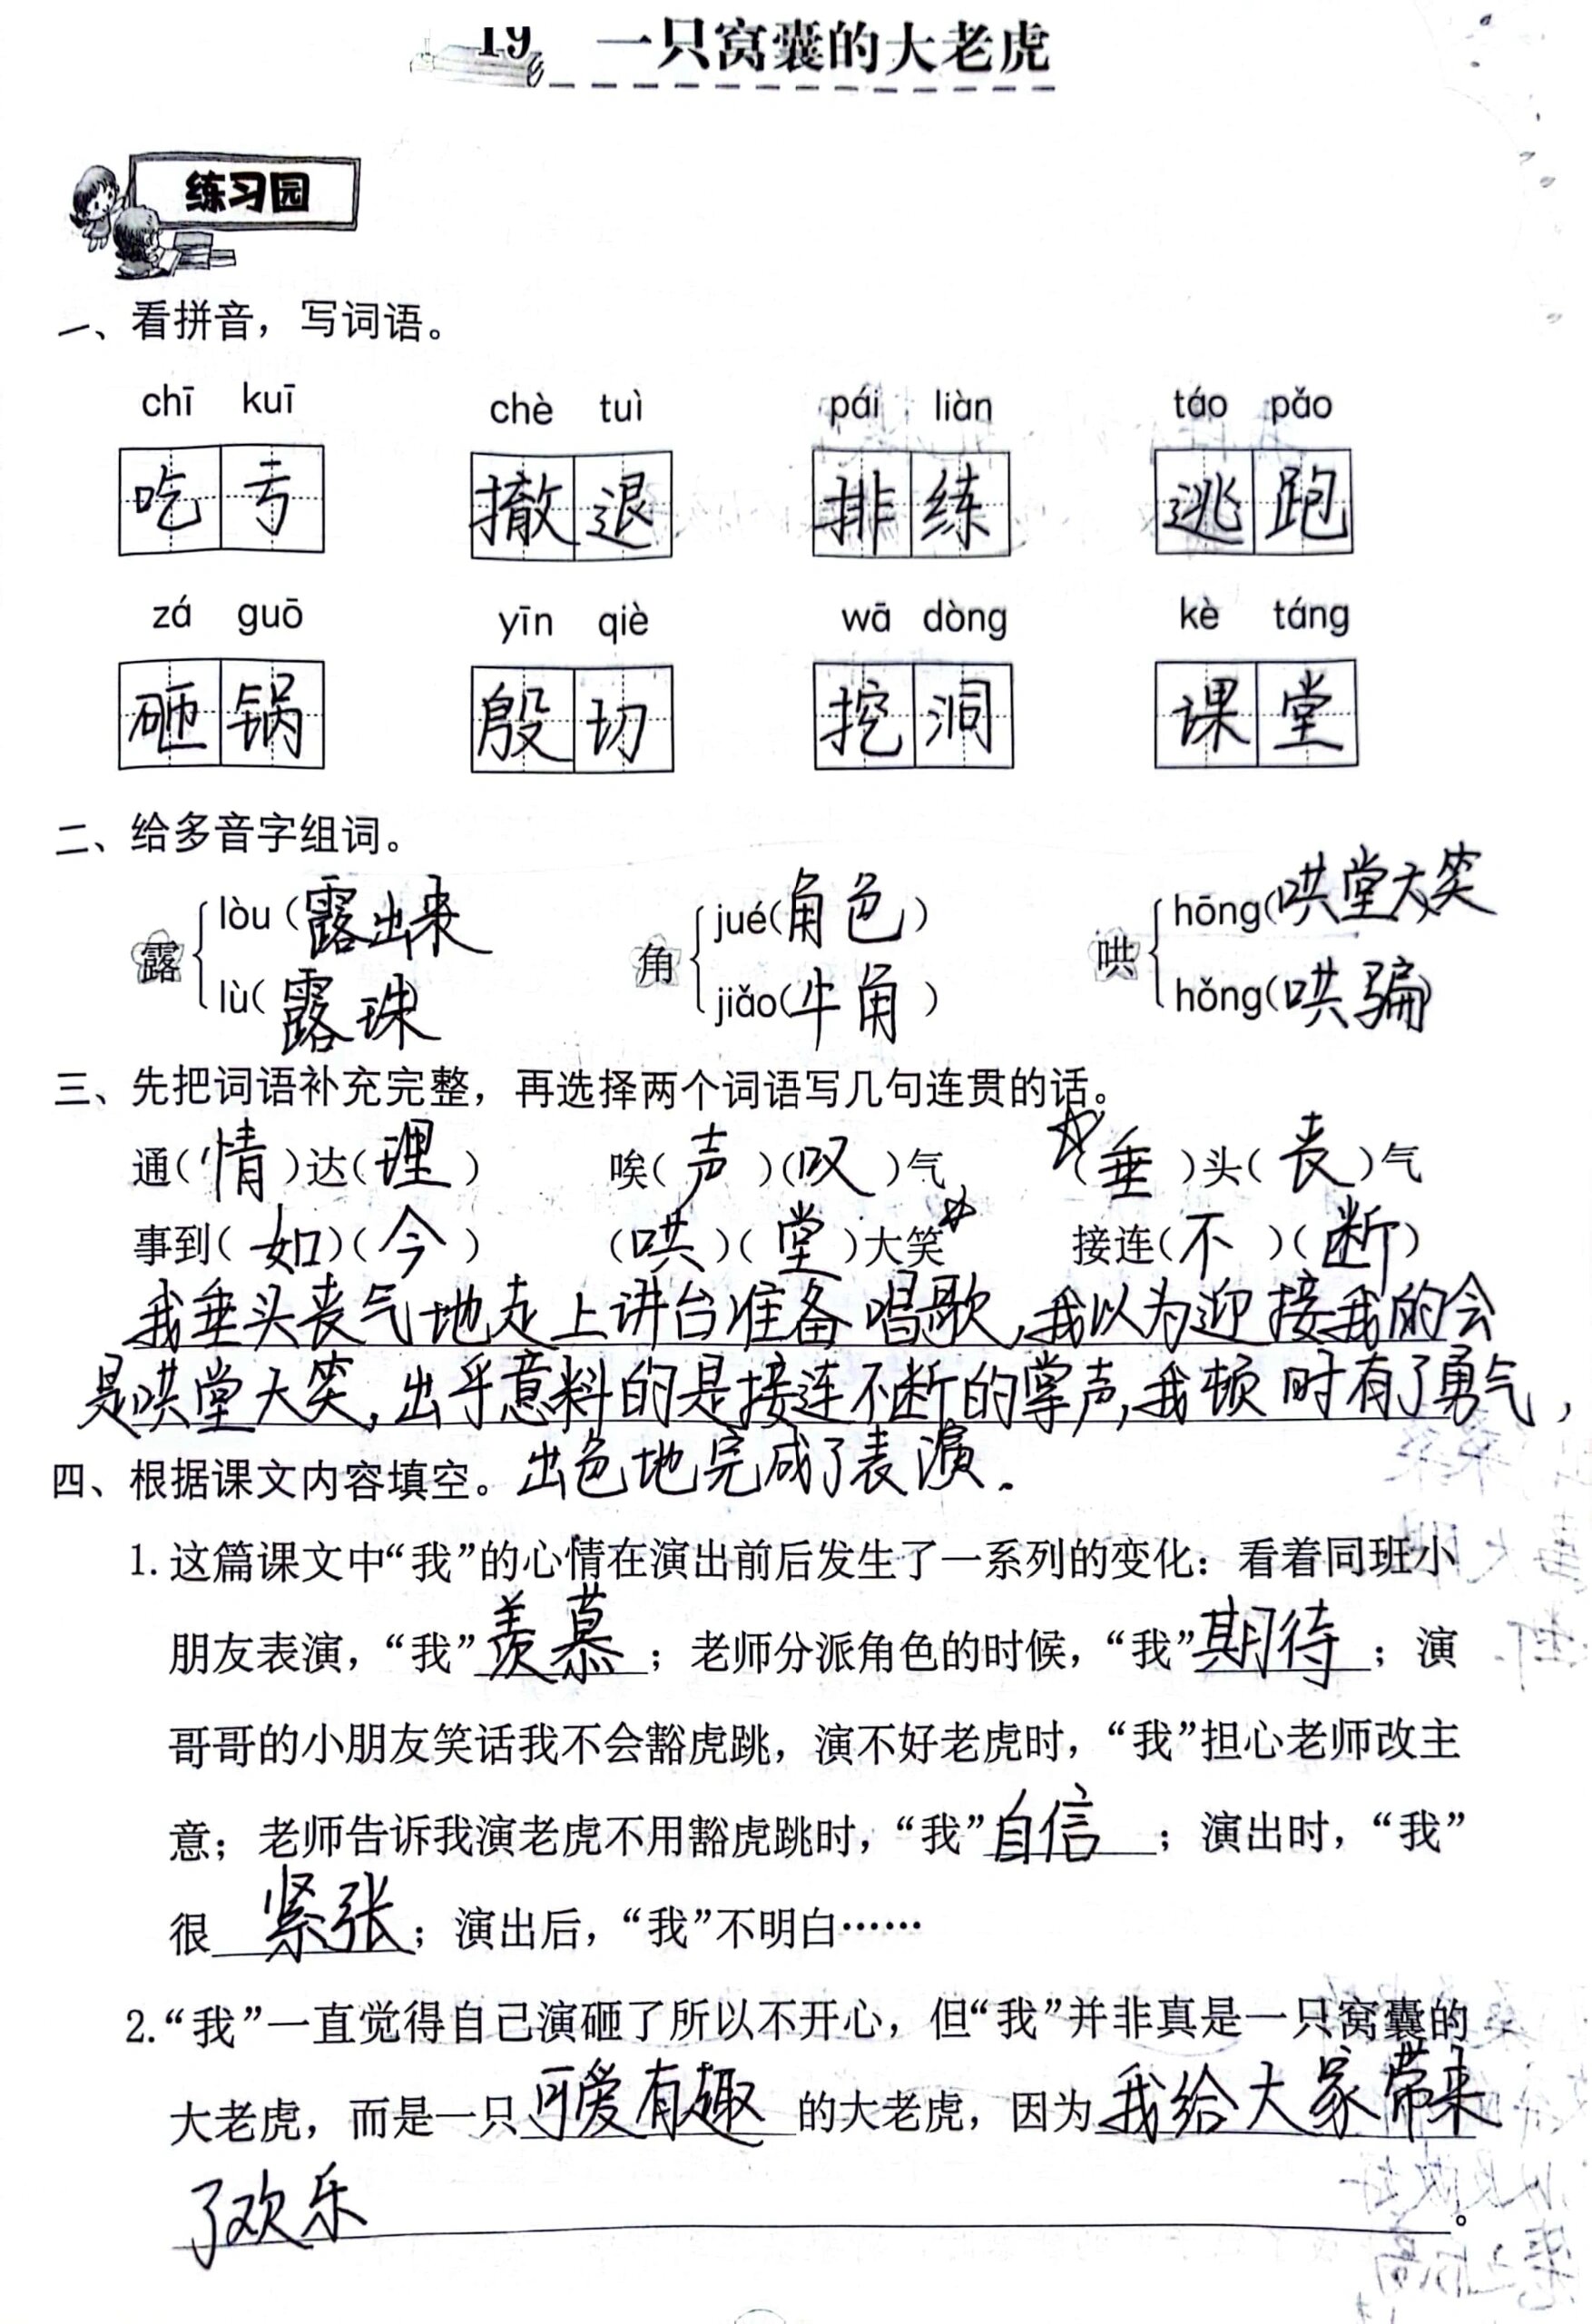 19 一只窝囊的大老虎
练习园
一、看拼音，写词语。
chī kuī chè tuì pái liàn táo pǎo
吃亏 撤退 排练 逃跑
zá guō yīn qiè wā dòng kè táng
砸锅 殷切 挖洞 课堂
二、给多音字组词。
露 lòu（露出来） 角 jué（角色） 哄 hōng（哄堂大笑）
lù（露珠） jiǎo（牛角） hǒng（哄骗）
三、先把词语补充完整，再选择两个词语写几句连贯的话。
通（情）达（理） 唉（声）（叹）气 （垂）头（丧）气
事到（如）（今） （哄）（堂）大笑 接连（不）（断）
我垂头丧气地走上讲台准备唱歌，我以为迎接我的会
是哄堂大笑，出乎意料的是接连不断的掌声，我顿时有了勇气，
出色地完成了表演。
四、根据课文内容填空。
1. 这篇课文中“我”的心情在演出前后发生了一系列的变化：看着同班小
朋友表演，“我”羡慕；老师分派角色的时候，“我”期待；演
哥哥的小朋友笑话我不会豁虎跳，演不好老虎时，“我”担心老师改主
意；老师告诉我演老虎不用豁虎跳时，“我”自信；演出时，“我”
很紧张；演出后，“我”不明白……
2.“我”一直觉得自己演砸了所以不开心，但“我”并非真是一只窝囊的
大老虎，而是一只可爱有趣的大老虎，因为我给大家带来
了欢乐。